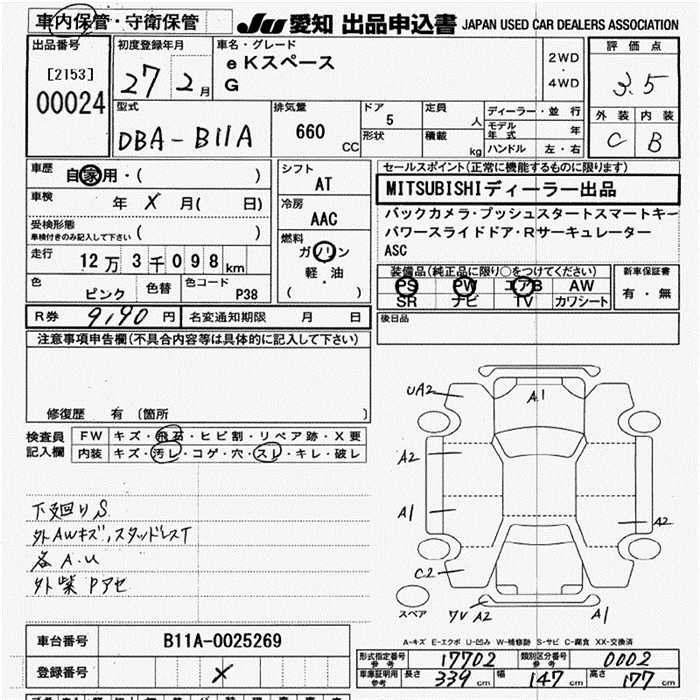 車内保管・守衛保管
JU 愛知 出品申込書 JAPAN USED CAR DEALERS ASSOCIATION
出品番号 [2153] 00024
初度登録年月 27年 2月
車名・グレード eKスペース G
2WD・4WD
評価点 3.5
外装 C 内装 B
型式 DBA-B11A
排気量 660 CC
ドア 5
形状
定員 人
積載 kg
ディーラー・並行
モデル年式 年
ハンドル 左・右
車歴 自家用・( )
車検 年 X 月( 日)
受検形態 車検付きのみ記入して下さい ( )
走行 12万 3千098 km
色 ピンク 色替 色コード P38
シフト AT
冷房 AAC
燃料 ガソリン 軽・油 ( )
セールスポイント(正常に機能するものに限ります)
MITSUBISHIディーラー出品
バックカメラ・プッシュスタートスマートキー
パワースライドドア・Rサーキュレーター
ASC
装備品(純正品に限り○をつけてください)
PS PW エアB AW
SR ナビ TV カワシート
新車保証書 有・無
R券 9,190 円 名変通知期限 月 日
後日品
注意事項申告欄(不具合内容等は具体的に記入して下さい)
修復歴 有 〔箇所 〕
検査員記入欄
FW キズ・飛石・ヒビ割・リペア跡・X要
内装 キズ・汚レ・コゲ・穴・スレ・キレ・破レ
下廻りS
外AWキズ,スタッドレスT
各A.U
外柴 Pアセ
UA2 A1
A2
A1 A2
C2
スペア ワレA2 A1
A-キズ E-エクボ U-凹み W-補修跡 S-サビ C-腐食 XX-交換済
車台番号 B11A-0025269
登録番号 X
形式指定番号 参考 17702 類別区分番号 参考 0002
車庫証明用 参考 長さ 339 cm 幅 147 cm 高さ 177 cm